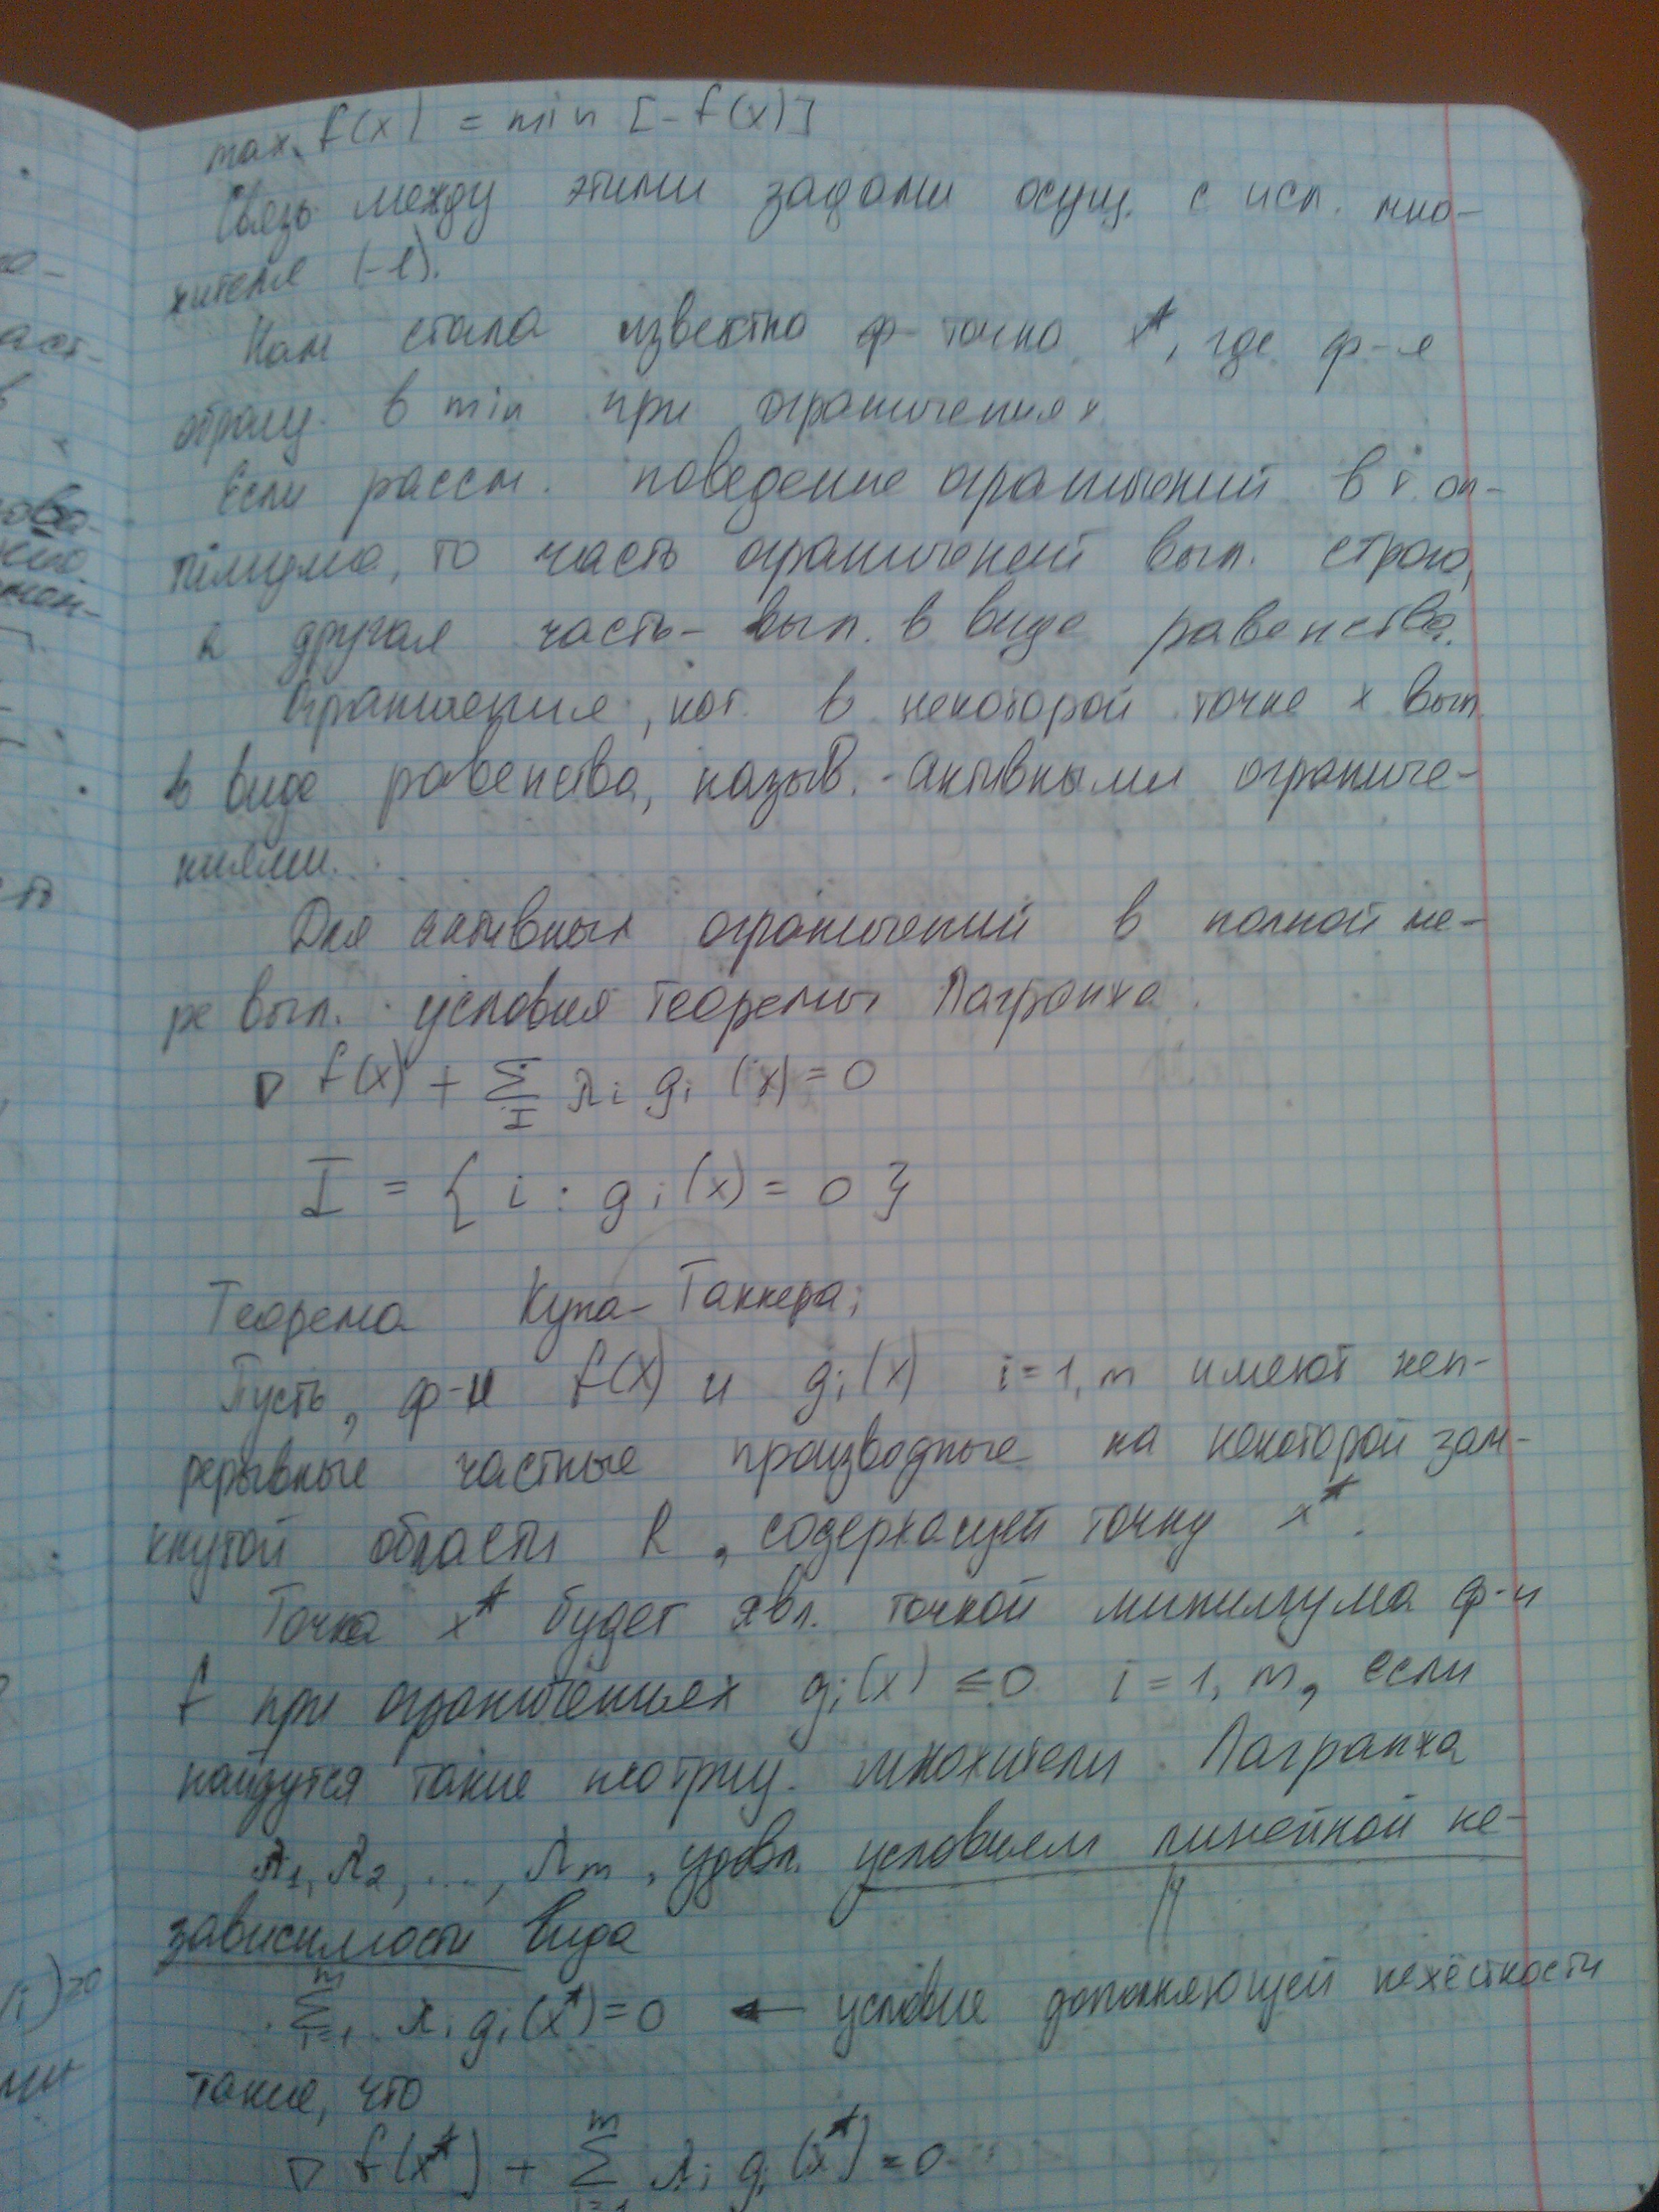 max f(x) = min [-f(x)]
Связь между этими задами осущ. с исп. мно-
жителя (-1).
Нам стала известна ф- точка x*, где ф-я
обращ. в min при ограничениях
Если рассм. поведение ограничений в т. оп-
тимума, то часть ограничений вып. строго,
а другая часть- вып. в виде равенства.
Ограничения, кот. в некоторой точке x вып.
в виде равенства, назыв. активными ограниче-
ниями.
Для активных ограничений в полной ме-
ре вып. условия теоремы Лагранжа:
∇ f(x) + Σ_I λi gi (x) = 0
I = { i : gi(x) = 0 }
Теорема Куна- Таккера:
Пусть, ф-и f(x) и gi(x) i=1, m имеют неп-
рерывные частные производные на некоторой зам-
кнутой области R, содержащей точку x*.
Точка x* будет явл. точкой минимума ф-и
f при ограничениях gi(x) ≤ 0 i = 1, m, если
найдутся такие неотриц. множители Лагранжа
λ1, λ2, ..., λm, удовл. условиям линейной не-
зависимости вида
Σ_{i=1}^{m} λi gi(x*) = 0 ← условие дополняющей нежёсткости
такие, что
∇ f(x*) + Σ_{i=1}^{m} λi gi(x*) = 0